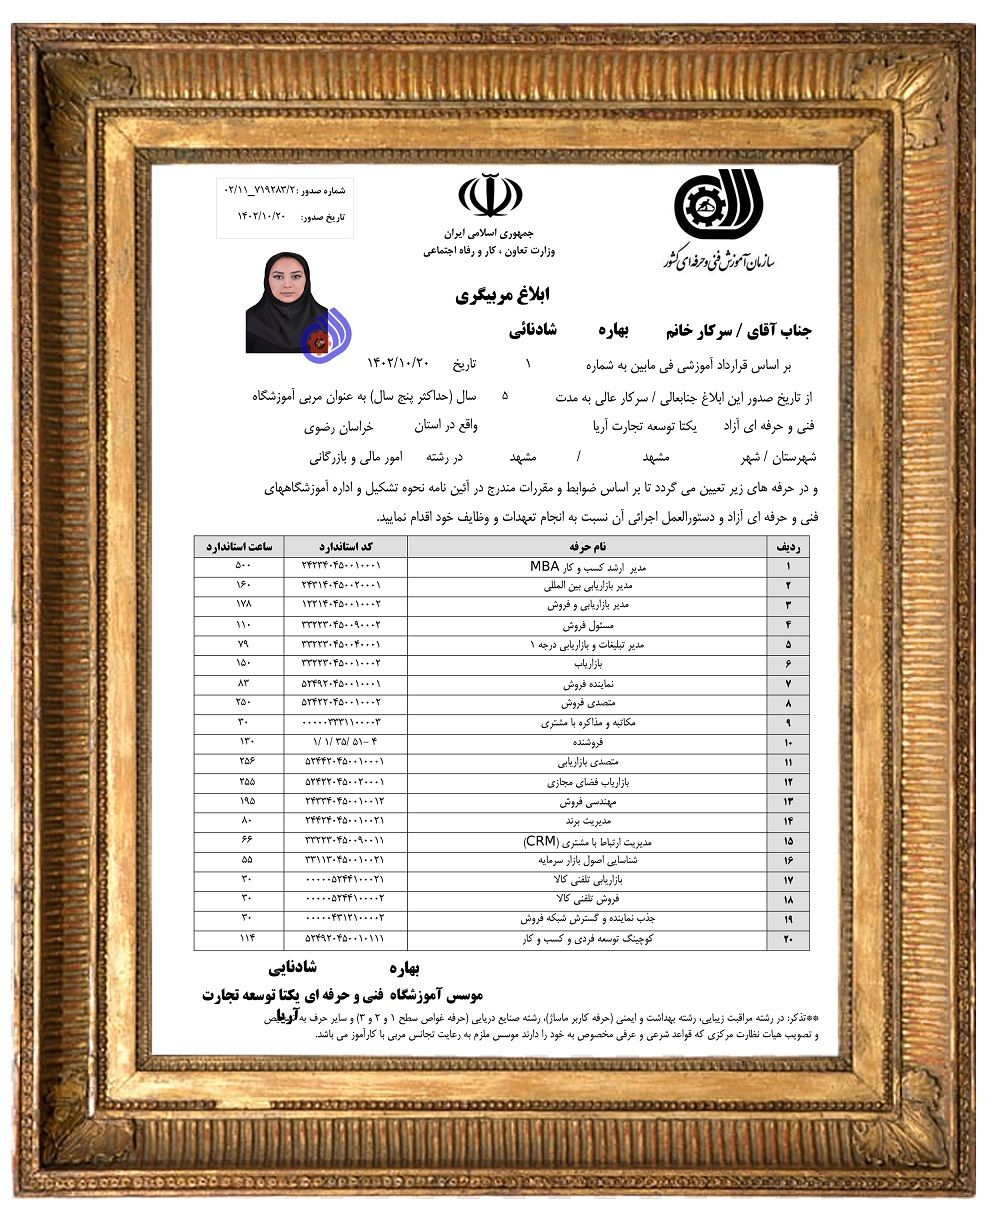 شماره صدور : ۷۱۹۲۸۳/۲_۰۲/۱۱
تاریخ صدور: ۱۴۰۲/۱۰/۲۰
جمهوری اسلامی ایران
وزارت تعاون ، کار و رفاه اجتماعی
سازمان آموزش فنی و حرفه ای کشور
ابلاغ مربیگری
جناب آقای / سرکار خانم بهاره شادنائی
بر اساس قرارداد آموزشی فی مابین به شماره ۱ تاریخ ۱۴۰۲/۱۰/۲۰
از تاریخ صدور این ابلاغ جنابعالی / سرکار عالی به مدت ۵ سال (حداکثر پنج سال) به عنوان مربی آموزشگاه
فنی و حرفه ای آزاد یکتا توسعه تجارت آریا واقع در استان خراسان رضوی
شهرستان / شهر مشهد / مشهد در رشته امور مالی و بازرگانی
و در حرفه های زیر تعیین می گردد تا بر اساس ضوابط و مقررات مندرج در آئین نامه نحوه تشکیل و اداره آموزشگاههای
فنی و حرفه ای آزاد و دستورالعمل اجرائی آن نسبت به انجام تعهدات و وظایف خود اقدام نمایید.
ردیف نام حرفه کد استاندارد ساعت استاندارد
۱ مدیر ارشد کسب و کار MBA ۲۴۲۳۴۰۴۵۰۰۱۰۰۰۱ ۵۰۰
۲ مدیر بازاریابی بین المللی ۲۴۳۱۴۰۴۵۰۰۲۰۰۰۱ ۱۶۰
۳ مدیر بازاریابی و فروش ۱۲۲۱۴۰۴۵۰۰۱۰۰۰۲ ۱۷۸
۴ مسئول فروش ۳۳۲۲۳۰۴۵۰۰۹۰۰۰۲ ۱۱۰
۵ مدیر تبلیغات و بازاریابی درجه ۱ ۳۳۲۲۳۰۴۵۰۰۴۰۰۰۱ ۷۹
۶ بازاریاب ۳۳۲۲۳۰۴۵۰۰۱۰۰۰۲ ۱۵۰
۷ نماینده فروش ۵۲۴۹۲۰۴۵۰۰۱۰۰۰۱ ۸۳
۸ متصدی فروش ۵۲۴۲۲۰۴۵۰۰۱۰۰۰۲ ۲۵۰
۹ مکاتبه و مذاکره با مشتری ۰۰۰۰۰۳۳۳۱۱۰۰۰۰۳ ۳۰
۱۰ فروشنده ۴ –۵۱ /۳۵ /۱ /۱ ۱۳۰
۱۱ متصدی بازاریابی ۵۲۴۴۲۰۴۵۰۰۱۰۰۰۱ ۲۵۶
۱۲ بازاریاب فضای مجازی ۵۲۴۲۲۰۴۵۰۰۲۰۰۰۱ ۲۵۵
۱۳ مهندسی فروش ۲۴۳۳۴۰۴۵۰۰۱۰۰۱۲ ۱۹۵
۱۴ مدیریت برند ۲۴۴۲۴۰۴۵۰۰۱۰۰۲۱ ۸۰
۱۵ مدیریت ارتباط با مشتری (CRM) ۳۳۲۲۳۰۴۵۰۰۹۰۰۱۱ ۶۶
۱۶ شناسایی اصول بازار سرمایه ۳۳۱۱۳۰۴۵۰۰۱۰۰۲۱ ۵۵
۱۷ بازاریابی تلفنی کالا ۰۰۰۰۰۵۲۴۴۱۰۰۰۲۱ ۳۰
۱۸ فروش تلفنی کالا ۰۰۰۰۰۵۲۴۴۱۰۰۰۰۲ ۳۰
۱۹ جذب نماینده و گسترش شبکه فروش ۰۰۰۰۰۴۳۱۲۱۰۰۰۰۲ ۳۰
۲۰ کوچینگ توسعه فردی و کسب و کار ۵۲۴۹۲۰۴۵۰۰۱۰۱۱۱ ۱۱۴
بهاره شادنایی
موسس آموزشگاه فنی و حرفه ای یکتا توسعه تجارت
آریا
**تذکر: در رشته مراقبت زیبایی، رشته بهداشت و ایمنی (حرفه کاربر ماساژ)، رشته صنایع دریایی (حرفه غواص سطح ۱ و ۲ و ۳) و سایر حرف به
و تصویب هیات نظارت مرکزی که قواعد شرعی و عرفی مخصوص به خود را دارند موسس ملزم به رعایت تجانس مربی با کارآموز می باشد.